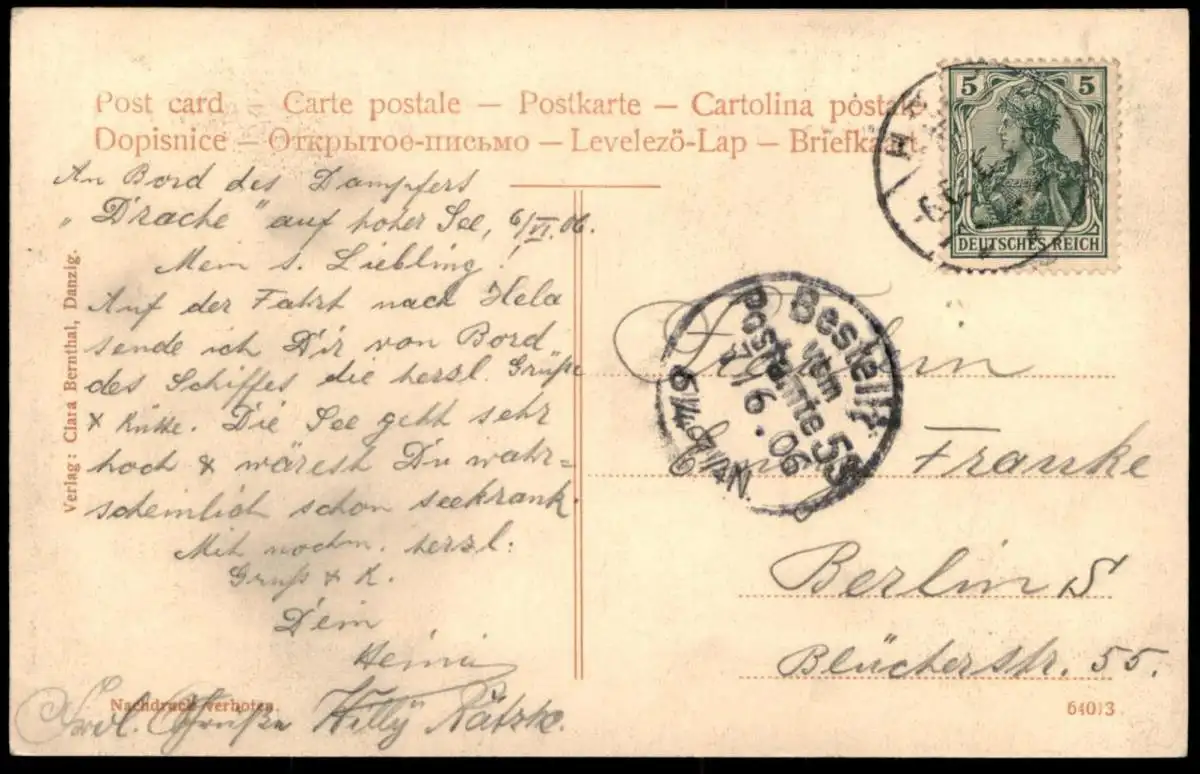 Post card – Carte postale – Postkarte – Cartolina postale
Dopisnice – Открытое-письмо – Levelező-Lap – Briefkaart.
An Bord des Dampfers
„Drache" auf hoher See, 6/VI. 06.
Mein s. Liebling!
Auf der Fahrt nach Hela
sende ich Dir von Bord
des Schiffes die herzl. Grüße
& Küsse. Die See geht sehr
hoch & wärest Du wahr=
scheinlich schon seekrank.
Mit nochm. herzl.
Gruß & K.
Dein
Heini
Grüße Willy
Verlag: Clara Bernthal, Danzig.
Nachdruck verboten.
5 5
DEUTSCHES REICH
Bestellt
vom
Postamte 53
7/6.06
Fräulein
Franke
Berlin S
Blücherstr. 55.
64013